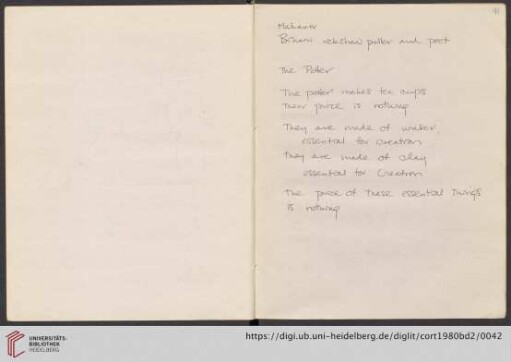 41
Bihari rickshaw puller and poet
The Potter
The potter makes tea cups
Their price is nothing
They are made of water,
essential for creation
They are made of clay
essential for Creation
The price of these essential things
is nothing
UNIVERSITÄTS-
BIBLIOTHEK
HEIDELBERG
https://digi.ub.uni-heidelberg.de/diglit/cort1980bd2/0042